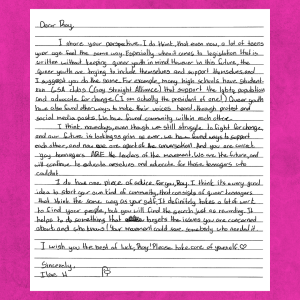 Dear Roy,
I share your perspective. I do think that even now, a lot of teens
your age feel the same way. Especially when it comes to legislation that is
written without keeping queer youth in mind. However in this future, the
queer youth are trying to include themselves and support themselves and
I suggest you do the same. For example, many high schools have student-
run GSA clubs (Gay Straight Alliance) that support the lgbtq population
and advocate for change. (I am actually the president of one!) Queer youth
have also found other ways to make their voices heard, through protest and
social media posts. We have found community within each other.
I think nowadays, even though we still struggle to fight for change,
and our future is looking as grim as ever, we have found ways to support
each other, and now are part of the conversation. And you are right,
gay teenagers ARE the leaders of the movement. We are the future, and
will continue to educate ourselves and advocate for those teenagers who
couldn't.
I do have one piece of advice for you, Roy. I think it's a very good
idea to start your own kind of community, that consists of queer teenagers
that think the same way as yourself. It definitely takes a lot of work
to find your people, but you will find the search just as rewarding. It
helps to do something that targets the issues you are concerned
about and who knows! Your movement could save somebody who needed it.
I wish you the best of luck, Roy! Please take care of yourself ♡
Sincerely,